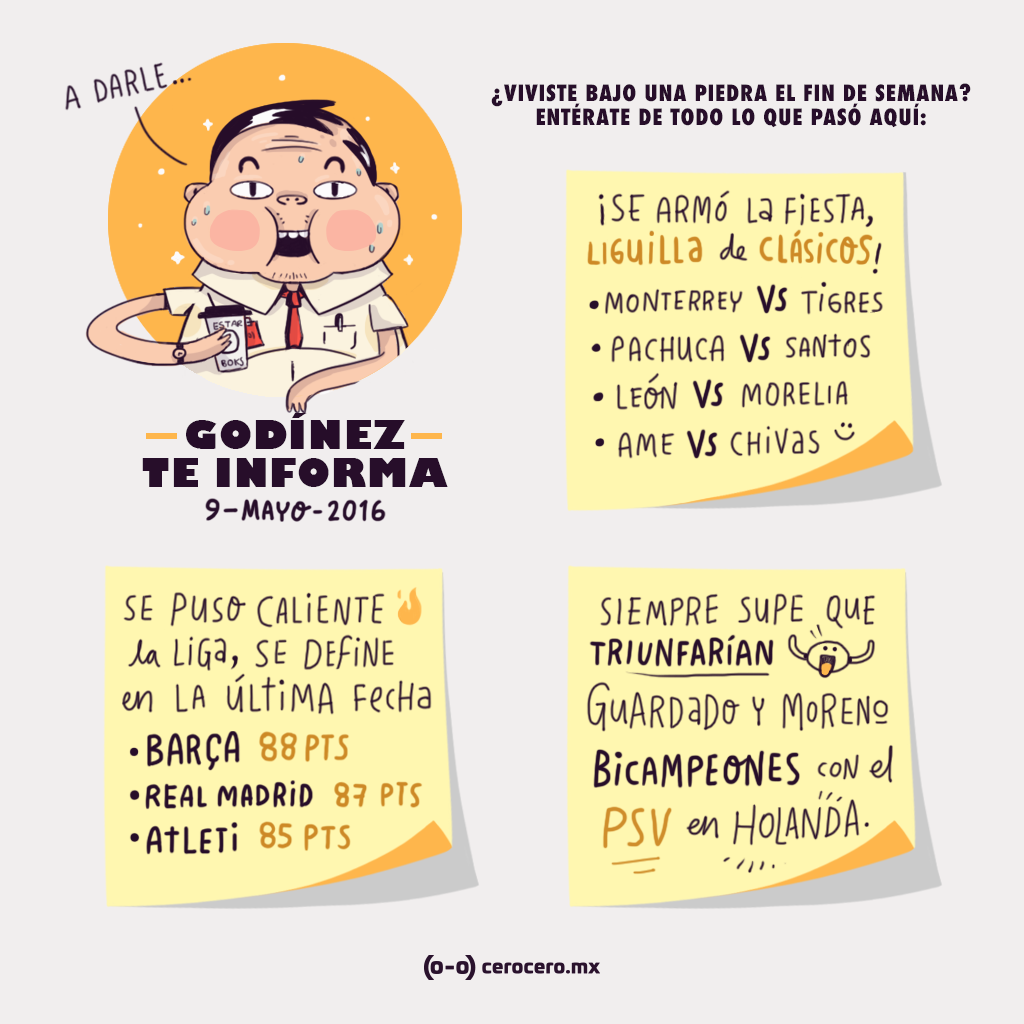 A DARLE...
ESTAR
BOKS
GODÍNEZ
TE INFORMA
9-MAYO-2016
¿VIVISTE BAJO UNA PIEDRA EL FIN DE SEMANA?
ENTÉRATE DE TODO LO QUE PASÓ AQUÍ:
¡SE ARMÓ La FiESTA,
LIGUILLa de CLÁSICOS!
•MONTERREY VS TiGRES
• PACHUCA VS SANTOS
• LEÓN VS MORELIA
• AME VS CHiVas
SE PUSO CALIENTE
la LIGa, SE DEFiNE
en LA ÚLTIMA FecHa
•BARÇA 88 PTS
•REAL MADRiD 87 PTS
•AtLETi 85 PTS
SIEMPRE SUPE QUE
TRIUNFARÍAN
GUARDaDO Y MORENO
BiCAMPEONES CON el
PSV en HOLANDA.
(o-o) cerocero.mx